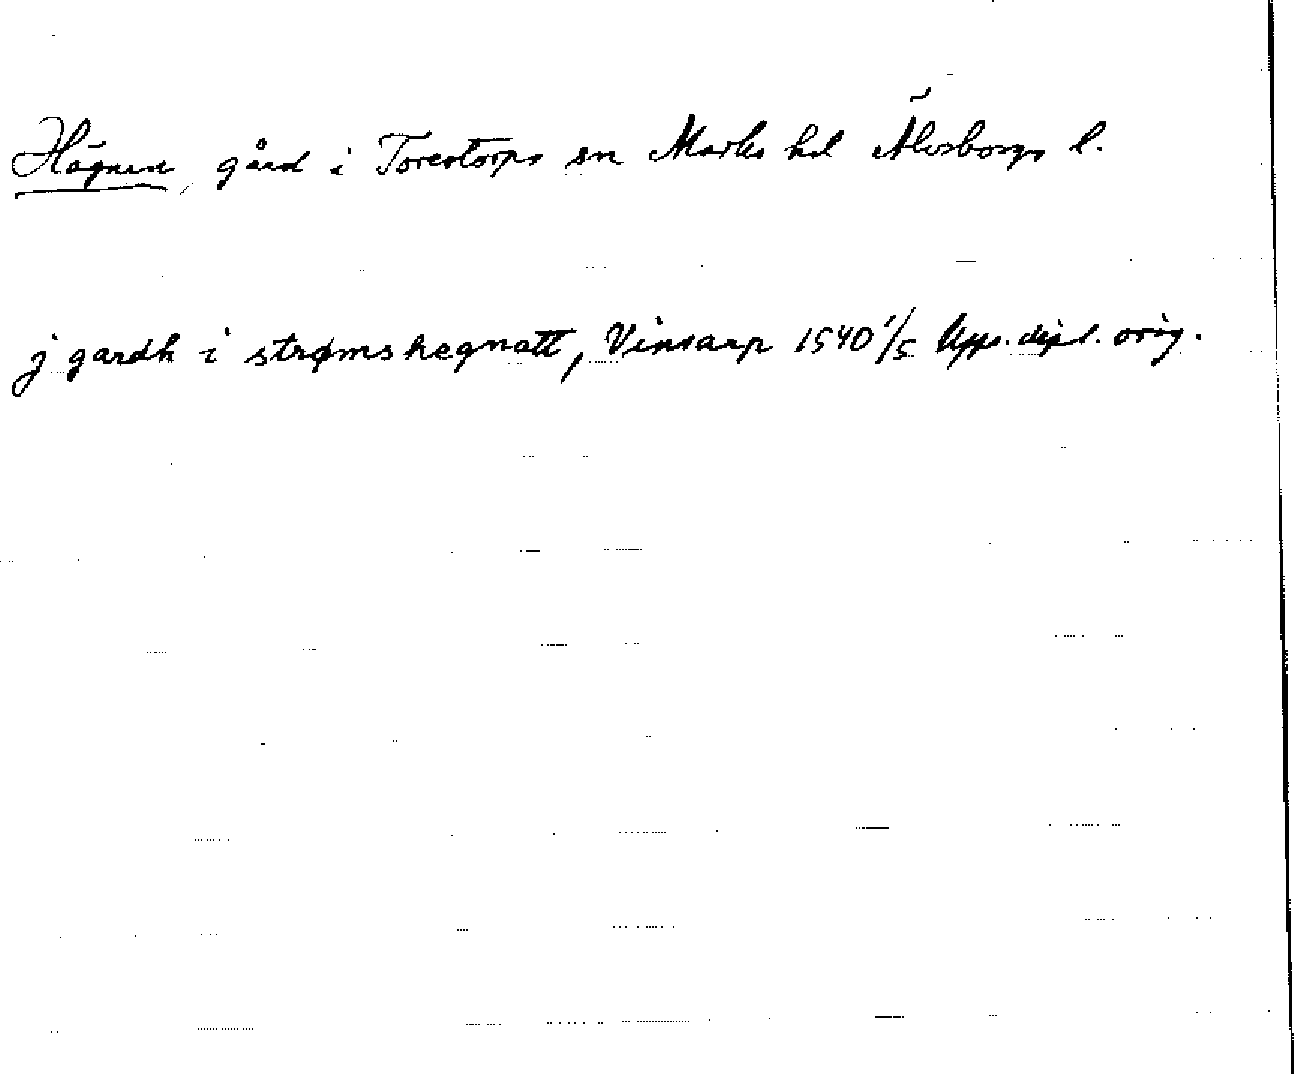 Hägnen, gård i Torestorps sn Marks hd Älvsborgs l.
j gardh i strømshegnatt, Vinsarp 1540 1/5 Upps. dipl. orig.